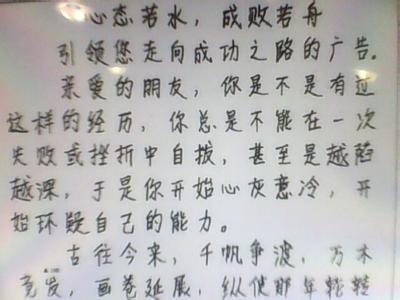 心态若水，成败若舟
引领您走向成功之路的广告。
亲爱的朋友，你是不是有过
这样的经历，你总是不能在一次
失败或挫折中自拔，甚至是越陷
越深，于是你开始心灰意冷，开
始环疑自己的能力。
古往今来，千帆争渡，万木
竞发，画卷延展，纵使那年